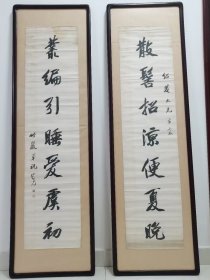 散髻招凉便夏晚
丛编引睡爱虞初